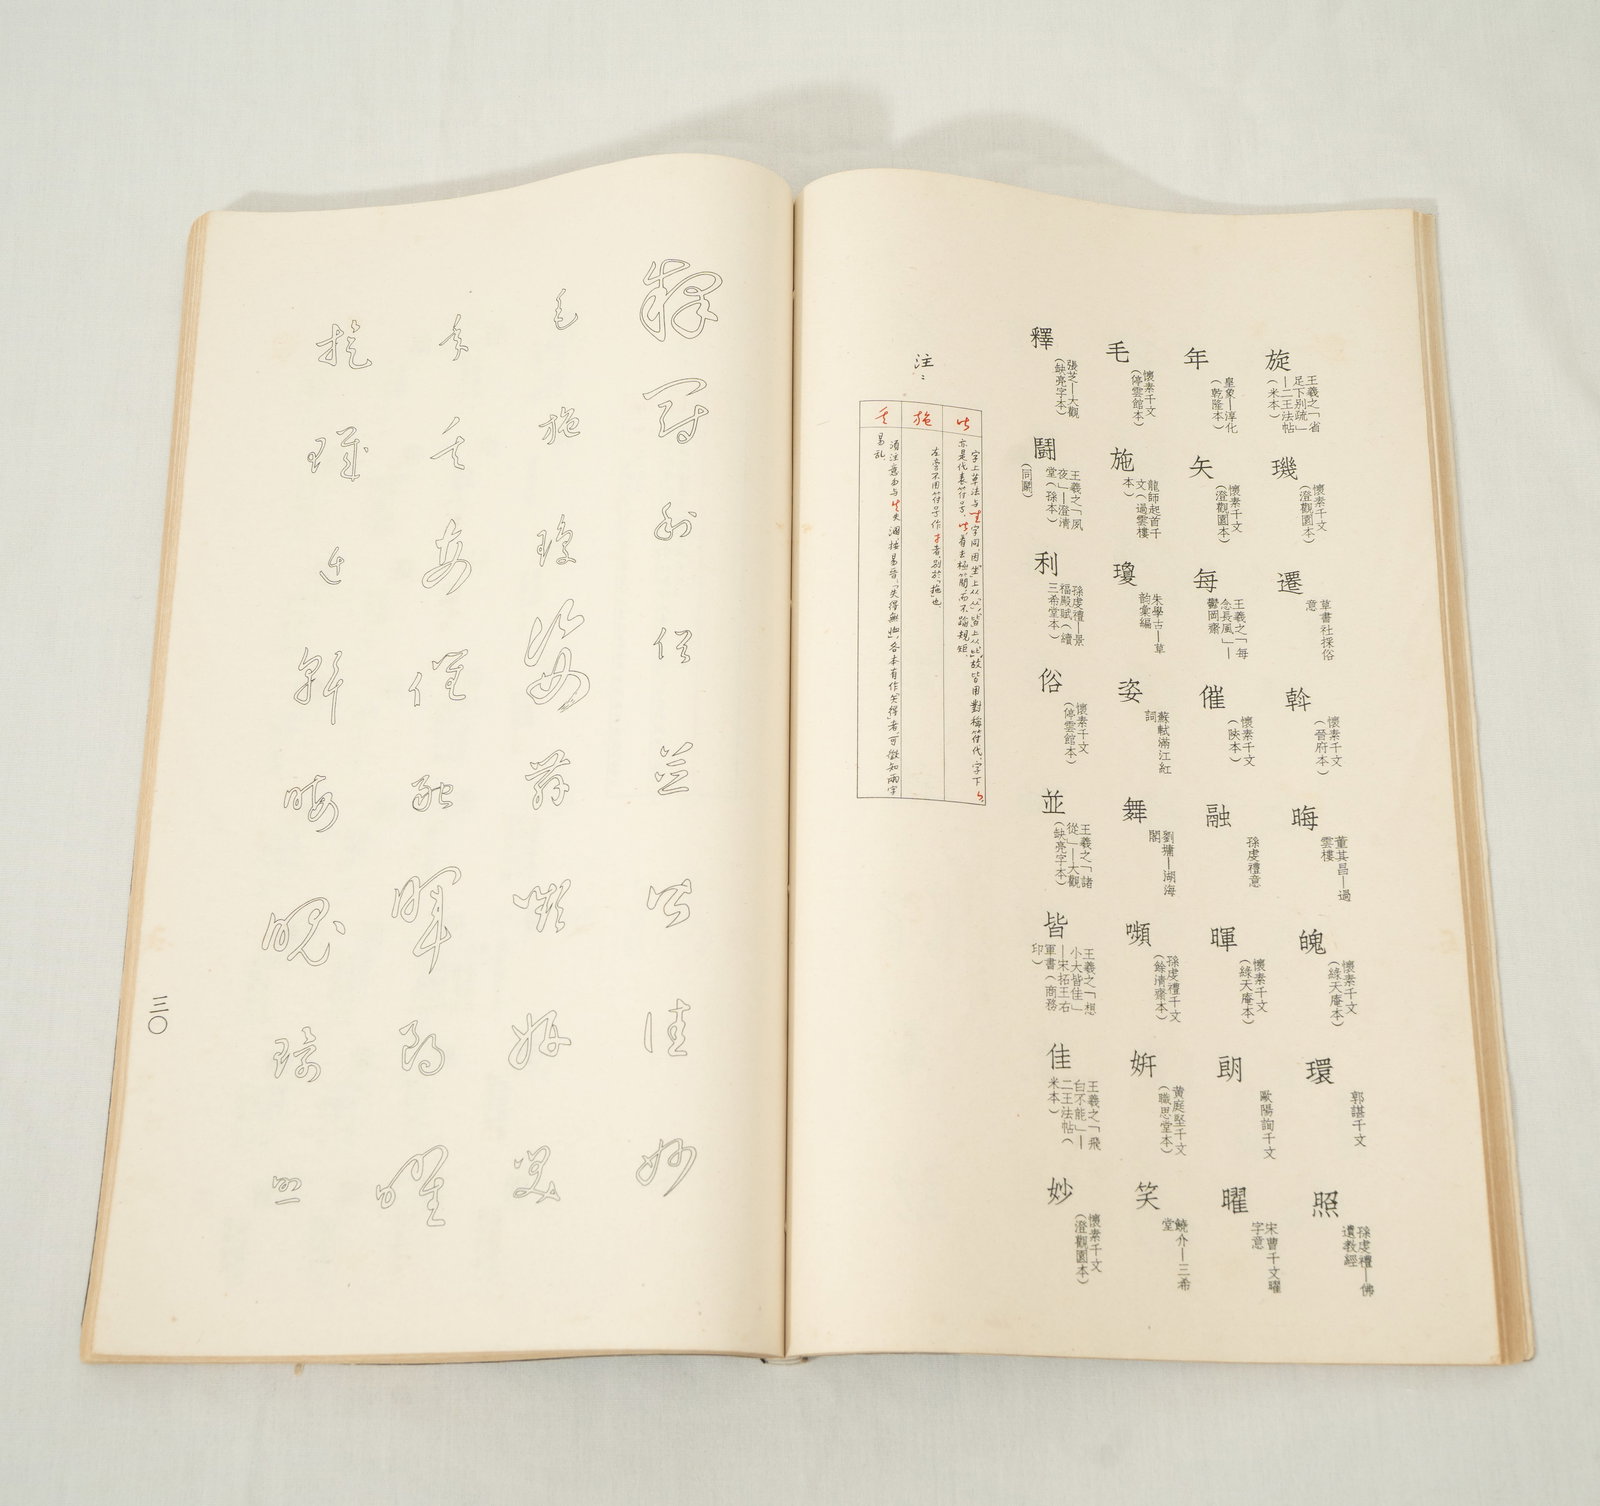 旋
王羲之「省
足下别疏」
—二王法帖
(米本)
璣
懷素千文
(澄觀園本)
遷
草書社採俗
意
斡
懷素千文
(晉府本)
晦
董其昌—過
雲樓
魄
懷素千文
(綠天庵本)
環
郭諶千文
照
孫虔禮—佛
遺教經
年
皇象—淳化
(乾隆本)
矢
懷素千文
(澄觀園本)
每
王羲之「每
念長風」—
鬱岡齋
催
懷素千文
(陝本)
融
孫虔禮意
暉
懷素千文
(綠天庵本)
朗
歐陽詢千文
曜
宋曹千文曜
字意
毛
懷素千文
(停雲館本)
施
龍師起首千
文(過雲樓
本)
瓊
朱學古—草
韵彙編
姿
蘇軾滿江紅
詞
舞
劉墉—湖海
閣
嚬
孫虔禮千文
(餘清齋本)
姸
黃庭堅千文
(職思堂本)
笑
饒介—三希
堂
釋
張芝—大觀
(缺亮字本)
鬬
王羲之「夙
夜」—澄清
堂(孫本)
(同鬭)
利
孫虔禮—景
福殿賦(續
三希堂本)
俗
懷素千文
(停雲館本)
並
王羲之「諸
從」—大觀
(缺亮字本)
皆
王羲之「想
小大皆佳」
—宋拓王右
軍書(商務
印)
佳
王羲之「飛
白不能」—
二王法帖(
米本)
妙
懷素千文
(澄觀園本)
注:
施
左旁不用符号作扌者,別於「拖」也.
釋鬬利俗並皆佳妙
毛施瓊姿舞嚬姸笑
年矢每催融暉朗曜
旋璣遷斡晦魄環照
三〇